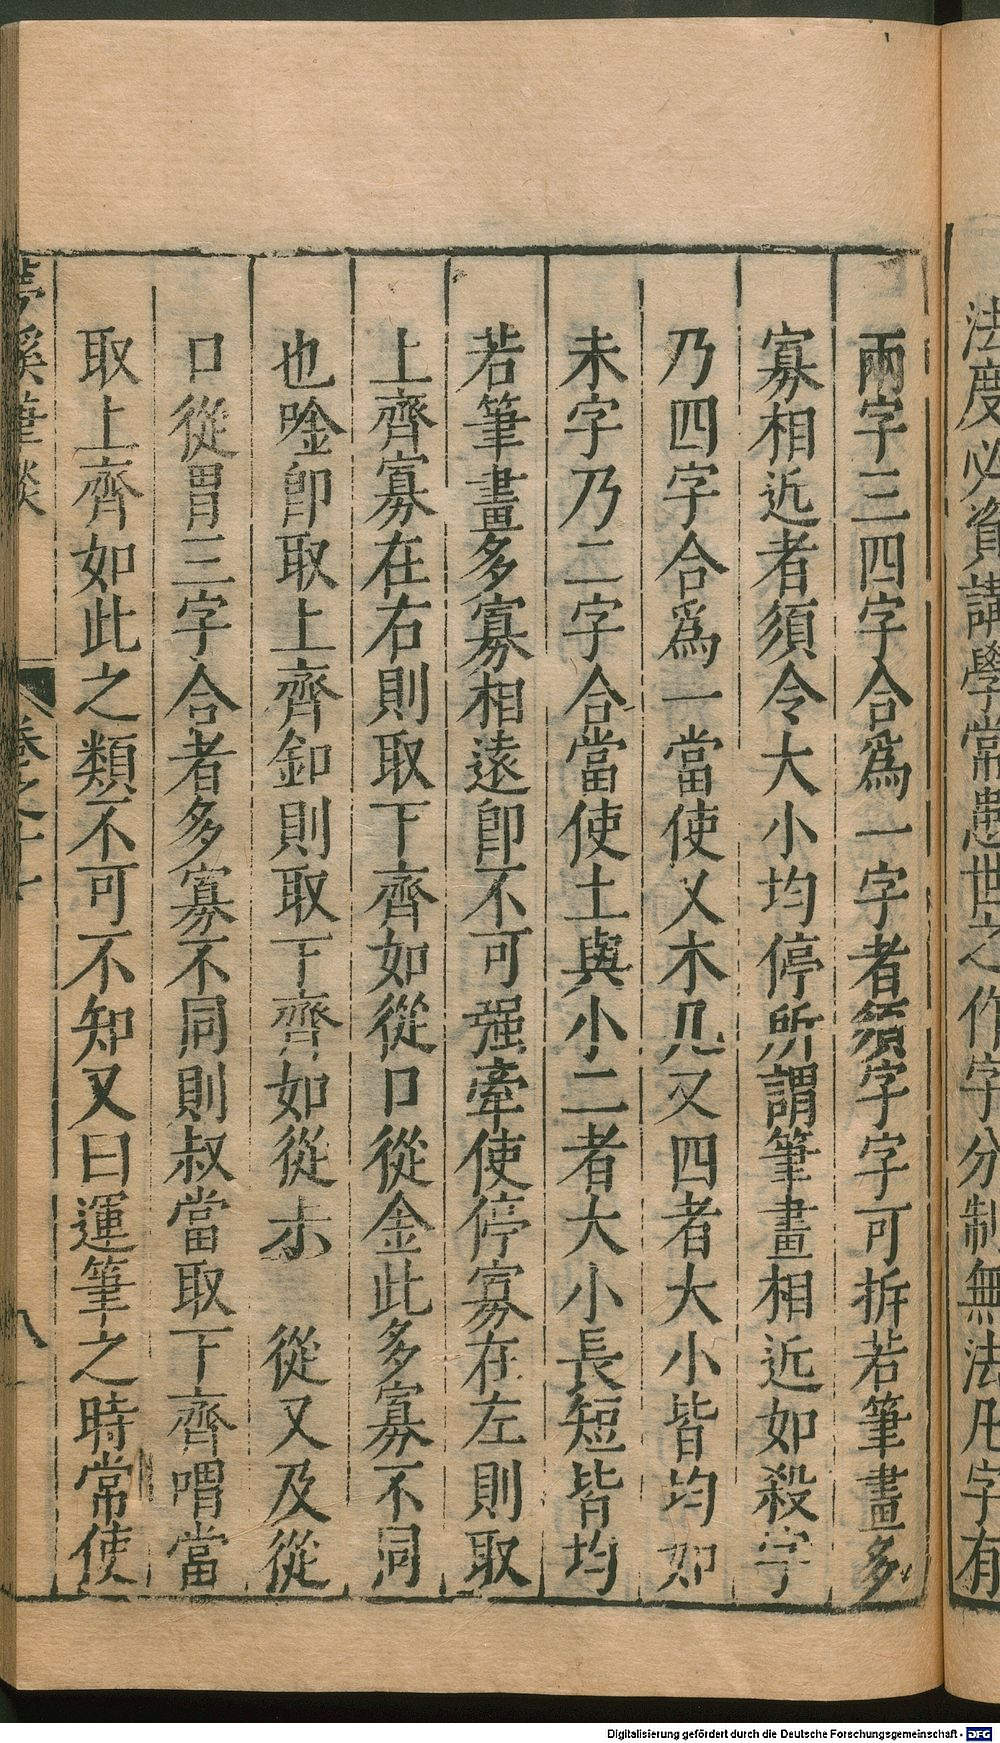 法度必資講學常患世之作字分制無法凡字有
兩字三四字合爲一字者須字字可拆若筆畫多
寡相近者須令大小均停所謂筆畫相近如殺字
乃四字合爲一當使乂木几又四者大小皆均如
未字乃二字合當使土與小二者大小長短皆均
若筆畫多寡相遠卽不可强牽使停寡在左則取
上齊寡在右則取下齊如從口從金此多寡不同
也唫卽取上齊釦則取下齊如從尗 從又及從
口從胃三字合者多寡不同則叔當取下齊喟當
取上齊如此之類不可不知又曰運筆之時常使
夢溪筆談 卷之十七 八
Digitalisierung gefördert durch die Deutsche Forschungsgemeinschaft - DFG